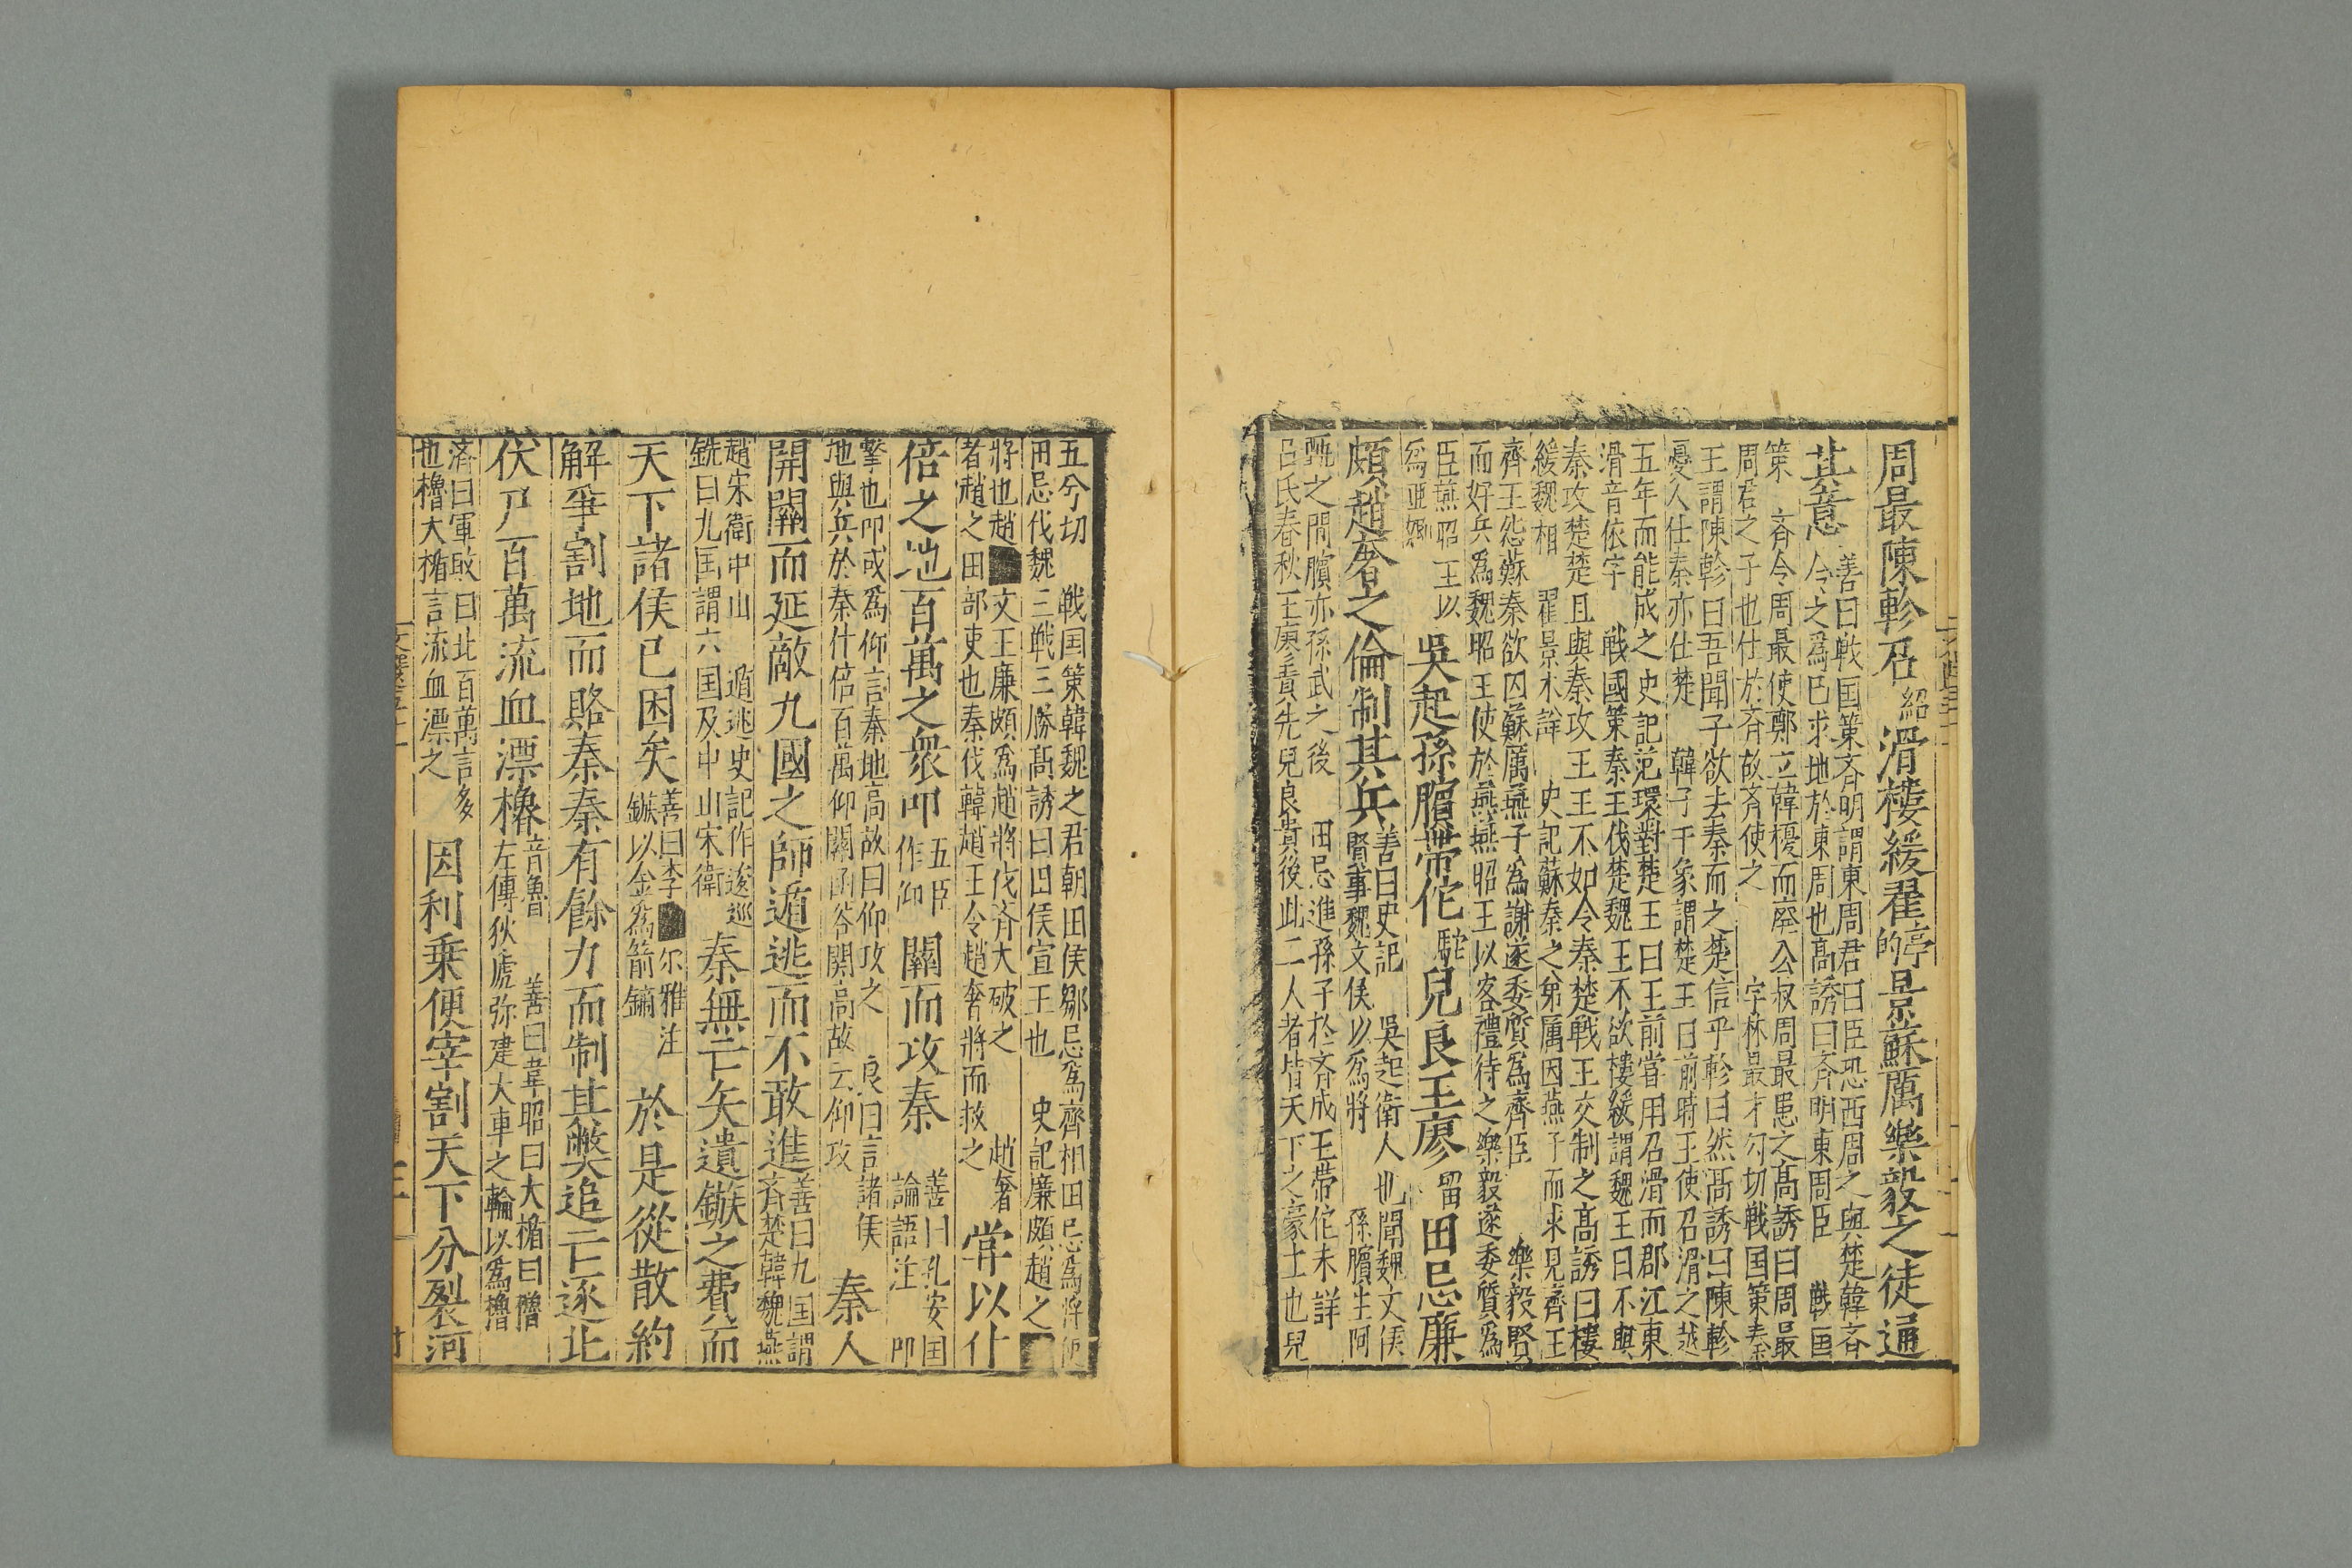 周最陳軫召紹滑樓緩翟亭的景蘇厲樂毅之徒通
其意善曰戦国策斉明謂東周君曰臣恐西周之與楚韓斉
令之爲已求地於東周也高誘曰斉明東周臣 戦国
策 斉令周最使鄭立韓擾而廃公叔周最患之高誘曰周最
周君之子也仕於斉故斉使之 字林最才勾切戦国策秦
王謂陳軫曰吾聞子欲去秦而之楚信乎軫曰然高誘曰陳軫
憂人仕秦亦仕楚 韓子干象謂楚王曰前時王使召滑之越
五年而能成之史記范環對楚王曰王前當用召滑而郡江東
滑音依字 戦國策秦王伐楚魏王不欲樓緩謂魏王曰不與
秦攻楚楚且與秦攻王王不如令秦楚戦王交制之高誘曰樓
緩魏相 翟景未詳 史記蘇秦之弟厲因燕子而求見齊王
齊王怨蘇秦欲囚蘇厲燕子爲謝遂委質爲齊臣 樂毅賢
而好兵爲魏昭王使於燕燕昭王以客禮待之樂毅遂委質爲
臣燕昭王以
爲亜卿 吳起孫臏帶佗駝兒良王廖留田忌廉
頗趙奢之倫制其兵善曰史記 吳起衛人也聞魏文侯
賢事魏文侯以爲將 孫臏生阿
甄之間臏亦孫武之後 田忌進孫子於斉成王帶佗未詳
呂氏春秋王廖貴先兒良貴後此二人者皆天下之豪士也兒
五兮切 戦国策韓魏之君朝田侯鄒忌爲齊相田忌爲將
田忌伐魏三戦三勝高誘曰田侯宣王也 史記廉頗趙之
將也趙文王廉頗爲趙將伐斉大破之 趙奢
者趙之田部吏也秦伐韓趙王令趙奢將而救之 常以什
倍之地百萬之衆叩五臣作仰關而攻秦善曰孔安国
論語注 叩
擊也叩或爲仰言秦地高故曰仰攻之 良曰言諸侯
地與兵於秦什倍百萬仰關函谷関高故云仰攻 秦人
開關而延敵九國之師遁逃而不敢進善曰九国謂
斉楚韓魏燕
趙宋衛中山 遁逃史記作逡巡
銑曰九国謂六国及中山宋衛 秦無亡矢遺鏃之費而
天下諸侯已困矣善曰李尔雅注
鏃以金爲箭鏑 於是從散約
解爭割地而賂秦秦有餘力而制其弊追亡逐北
伏尸百萬流血漂櫓音魯 善曰韋昭曰大楯曰櫓
左傳狄虒弥建大車之輪以爲櫓
濟曰軍敗曰北百萬言多
也櫓大楯言流血漂之 因利乗便宰割天下分裂河